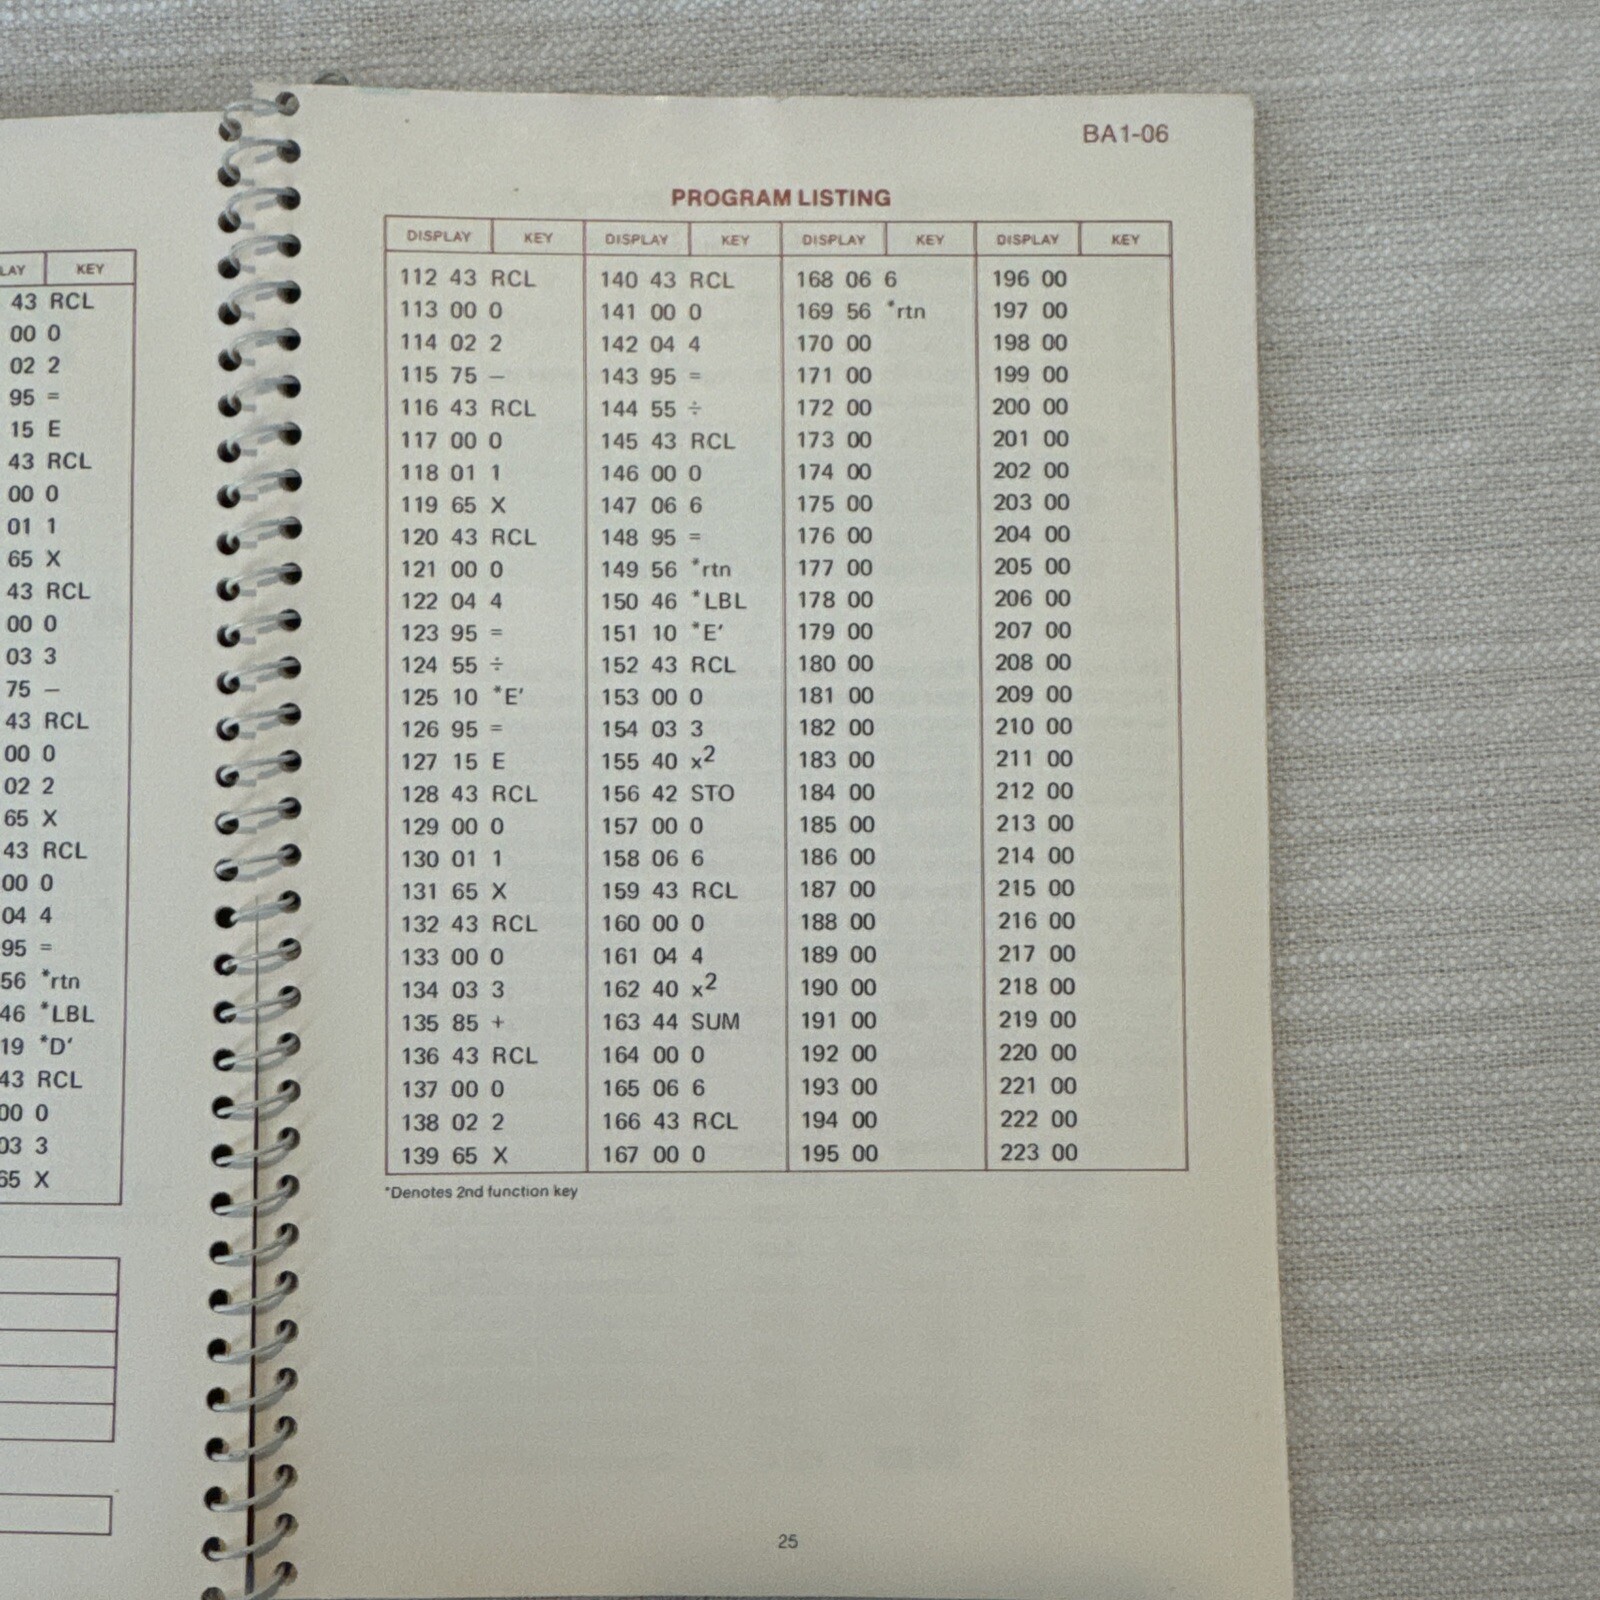 LAY KEY
43 RCL
00 0
02 2
95 =
15 E
43 RCL
00 0
01 1
65 X
43 RCL
00 0
03 3
75 –
43 RCL
00 0
02 2
65 X
43 RCL
00 0
04 4
95 =
56 *rtn
46 *LBL
19 *D′
43 RCL
00 0
03 3
65 X
BA1-06
PROGRAM LISTING
DISPLAY KEY DISPLAY KEY DISPLAY KEY DISPLAY KEY
112 43 RCL 140 43 RCL 168 06 6 196 00
113 00 0 141 00 0 169 56 *rtn 197 00
114 02 2 142 04 4 170 00 198 00
115 75 – 143 95 = 171 00 199 00
116 43 RCL 144 55 ÷ 172 00 200 00
117 00 0 145 43 RCL 173 00 201 00
118 01 1 146 00 0 174 00 202 00
119 65 X 147 06 6 175 00 203 00
120 43 RCL 148 95 = 176 00 204 00
121 00 0 149 56 *rtn 177 00 205 00
122 04 4 150 46 *LBL 178 00 206 00
123 95 = 151 10 *E′ 179 00 207 00
124 55 ÷ 152 43 RCL 180 00 208 00
125 10 *E′ 153 00 0 181 00 209 00
126 95 = 154 03 3 182 00 210 00
127 15 E 155 40 x² 183 00 211 00
128 43 RCL 156 42 STO 184 00 212 00
129 00 0 157 00 0 185 00 213 00
130 01 1 158 06 6 186 00 214 00
131 65 X 159 43 RCL 187 00 215 00
132 43 RCL 160 00 0 188 00 216 00
133 00 0 161 04 4 189 00 217 00
134 03 3 162 40 x² 190 00 218 00
135 85 + 163 44 SUM 191 00 219 00
136 43 RCL 164 00 0 192 00 220 00
137 00 0 165 06 6 193 00 221 00
138 02 2 166 43 RCL 194 00 222 00
139 65 X 167 00 0 195 00 223 00
*Denotes 2nd function key
25